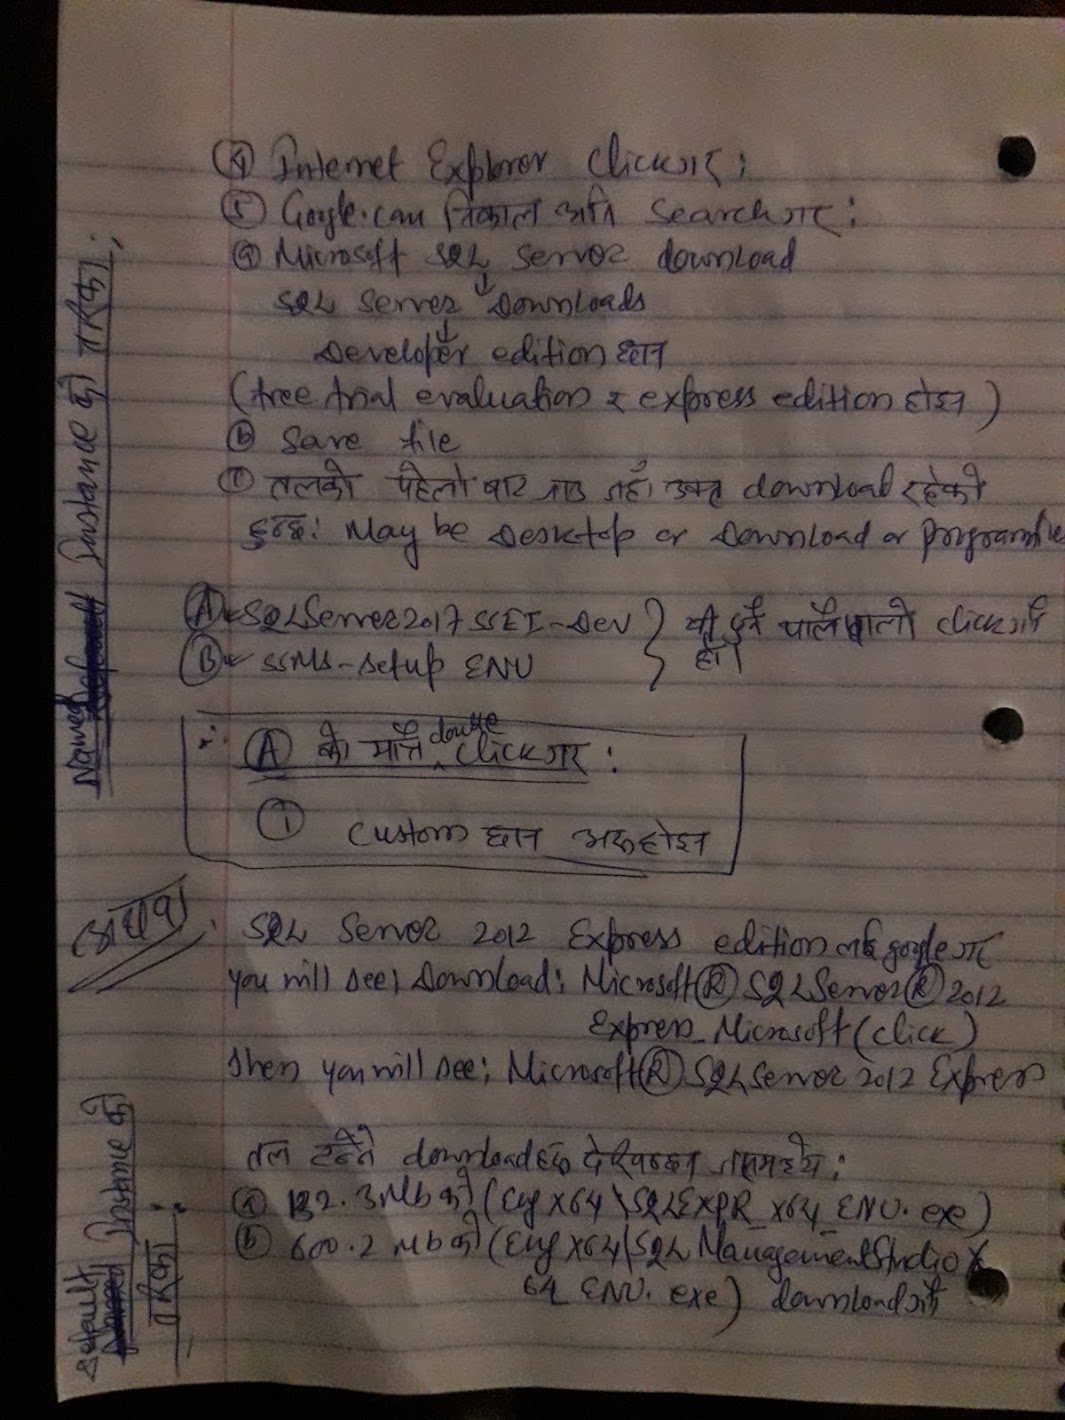 ④ Internet Explorer Click गर;
⑤ Google.com निकाल अनि search गर:
ⓐ Microsoft SQL Server download
↓
SQL Server Downloads
↓
Developer edition छान
(free trial evaluation र express edition होइन)
ⓑ Save file
① तलको पहिलो बाट जाउ जहाँ download रहेको
हुन्छ: May be Desktop or Download or programfile
Ⓐ SQLServer2017 SSEI-Dev } यी दुवै पालैपालो click गर्ने
Ⓑ SSMS-setup ENU हो।
∴ Ⓐ को मात्रै double click गर:
① Custom छान अरु होइन
Named Instance को तरिका:
(अथवा) SQL Server 2012 Express edition लाई google गर
you will see; Download: Microsoft® SQL Server® 2012
Express - Microsoft (click)
then you will see; Microsoft® SQL Server 2012 Express
तल download हरु देखिन्छन्
ⓐ 132.3 Mb को (Eng x64\SQLEXPR_x64_ENU.exe)
ⓑ 600.2 Mb को (Eng x64\SQL ManagementStudio x
64 ENU.exe) download गर्ने
Default Instance को
तरिका: